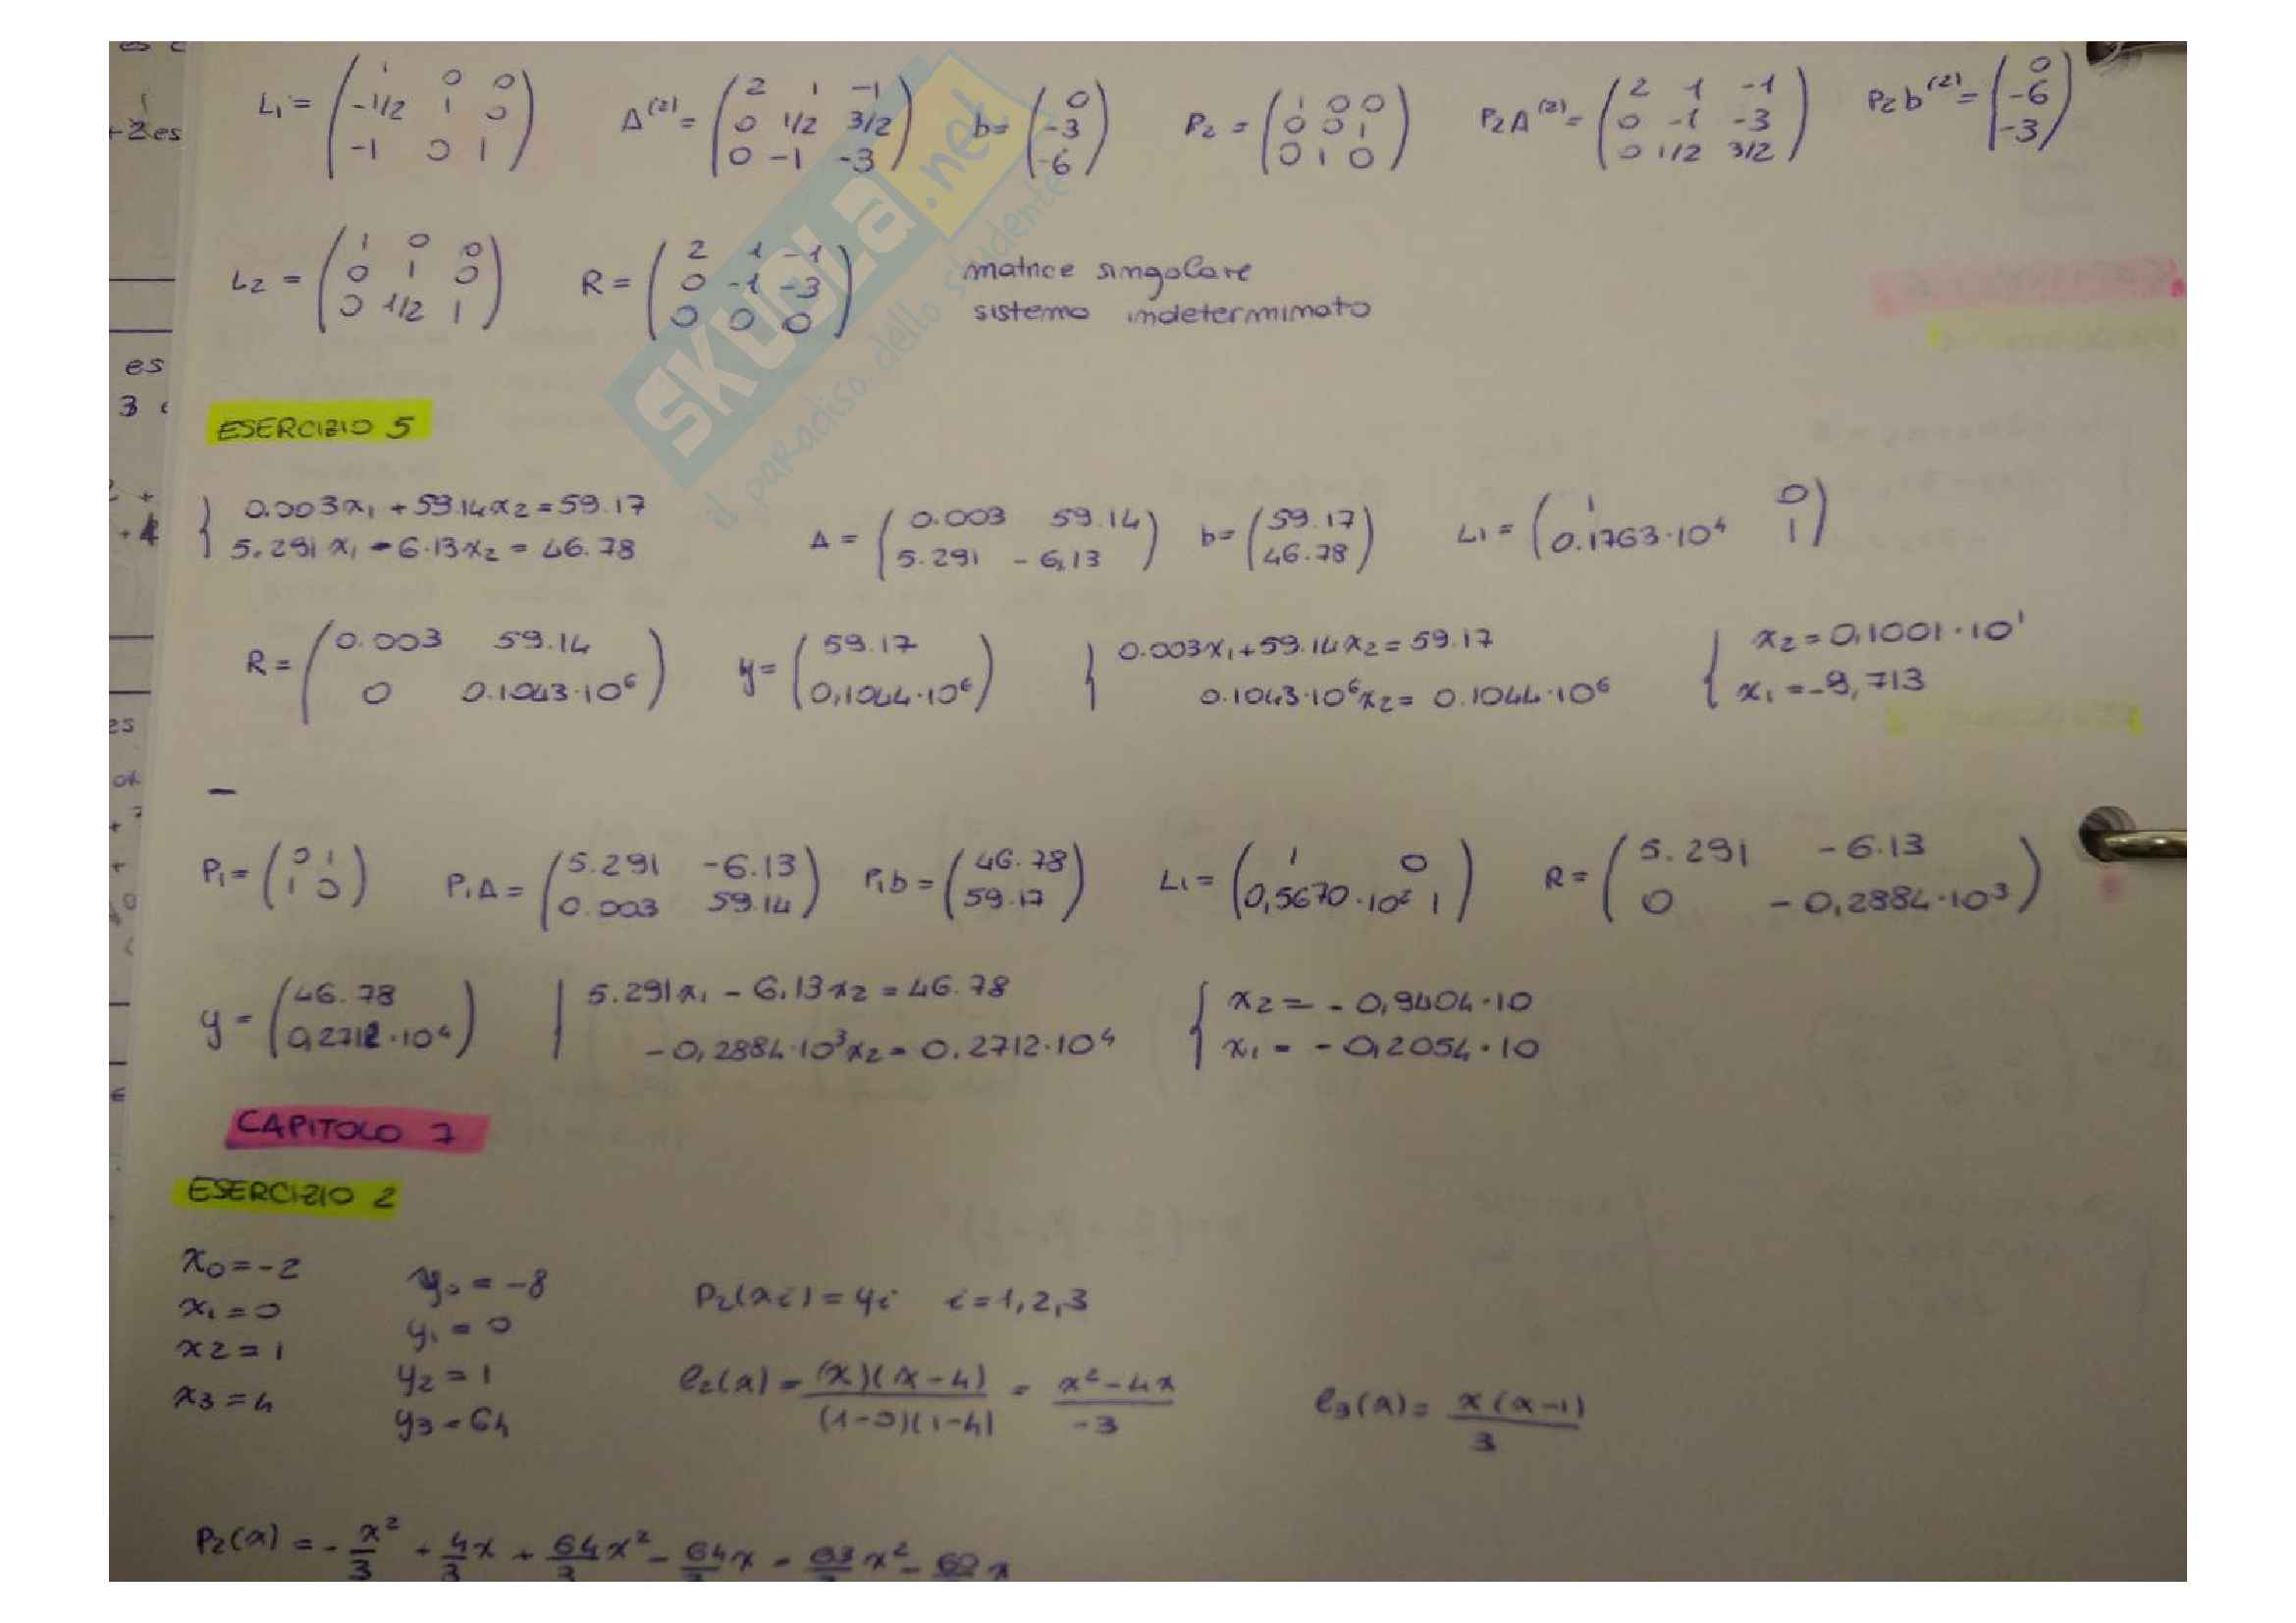 L₁ = (1 0 0 / -1/2 1 0 / -1 0 1) A⁽²⁾ = (2 1 -1 / 0 1/2 3/2 / 0 -1 -3) b = (0 / -3 / -6) P₂ = (1 0 0 / 0 0 1 / 0 1 0) P₂A⁽²⁾ = (2 1 -1 / 0 -1 -3 / 0 1/2 3/2) P₂b⁽²⁾ = (0 / -6 / -3)
L₂ = (1 0 0 / 0 1 0 / 0 1/2 1) R = (2 1 -1 / 0 -1 -3 / 0 0 0) matrice singolare
sistema indeterminato
SKUOLA.net
il paradiso dello studente
ESERCIZIO 5
{ 0.003x₁ + 59.14x₂ = 59.17
5.291x₁ - 6.13x₂ = 46.78
A = (0.003 59.14 / 5.291 -6,13) b = (59.17 / 46.78) L₁ = (1 0 / 0.1763·10⁴ 1)
R = (0.003 59.14 / 0 0.1043·10⁶) y = (59.17 / 0,1044·10⁶) { 0.003x₁ + 59.14x₂ = 59.17 / 0.1043·10⁶x₂ = 0.1044·10⁶ { x₂ = 0,1001·10¹ / x₁ = -9,713
P₁ = (0 1 / 1 0) P₁A = (5.291 -6.13 / 0.003 59.14) P₁b = (46.78 / 59.17) L₁ = (1 0 / 0,5670·10² 1) R = (5.291 -6.13 / 0 -0,2884·10³)
y = (46.78 / 0,2712·10⁴) { 5.291x₁ - 6,13x₂ = 46.78 / -0,2884·10³x₂ = 0.2712·10⁴ { x₂ = -0,9404·10 / x₁ = -0,2054·10
CAPITOLO 7
ESERCIZIO 2
x₀ = -2 y₀ = -8 P₂(xi) = yi i = 1,2,3
x₁ = 0 y₁ = 0
x₂ = 1 y₂ = 1 l₂(x) = (x)(x-4) / (1-0)(1-4) = x²-4x / -3 l₃(x) = x(x-1) / 3
x₃ = 4 y₃ = 64
P₂(x) = - x²/3 + 4x/3 + 64x²/3 - 64x/3 = 63 x² - 60 x